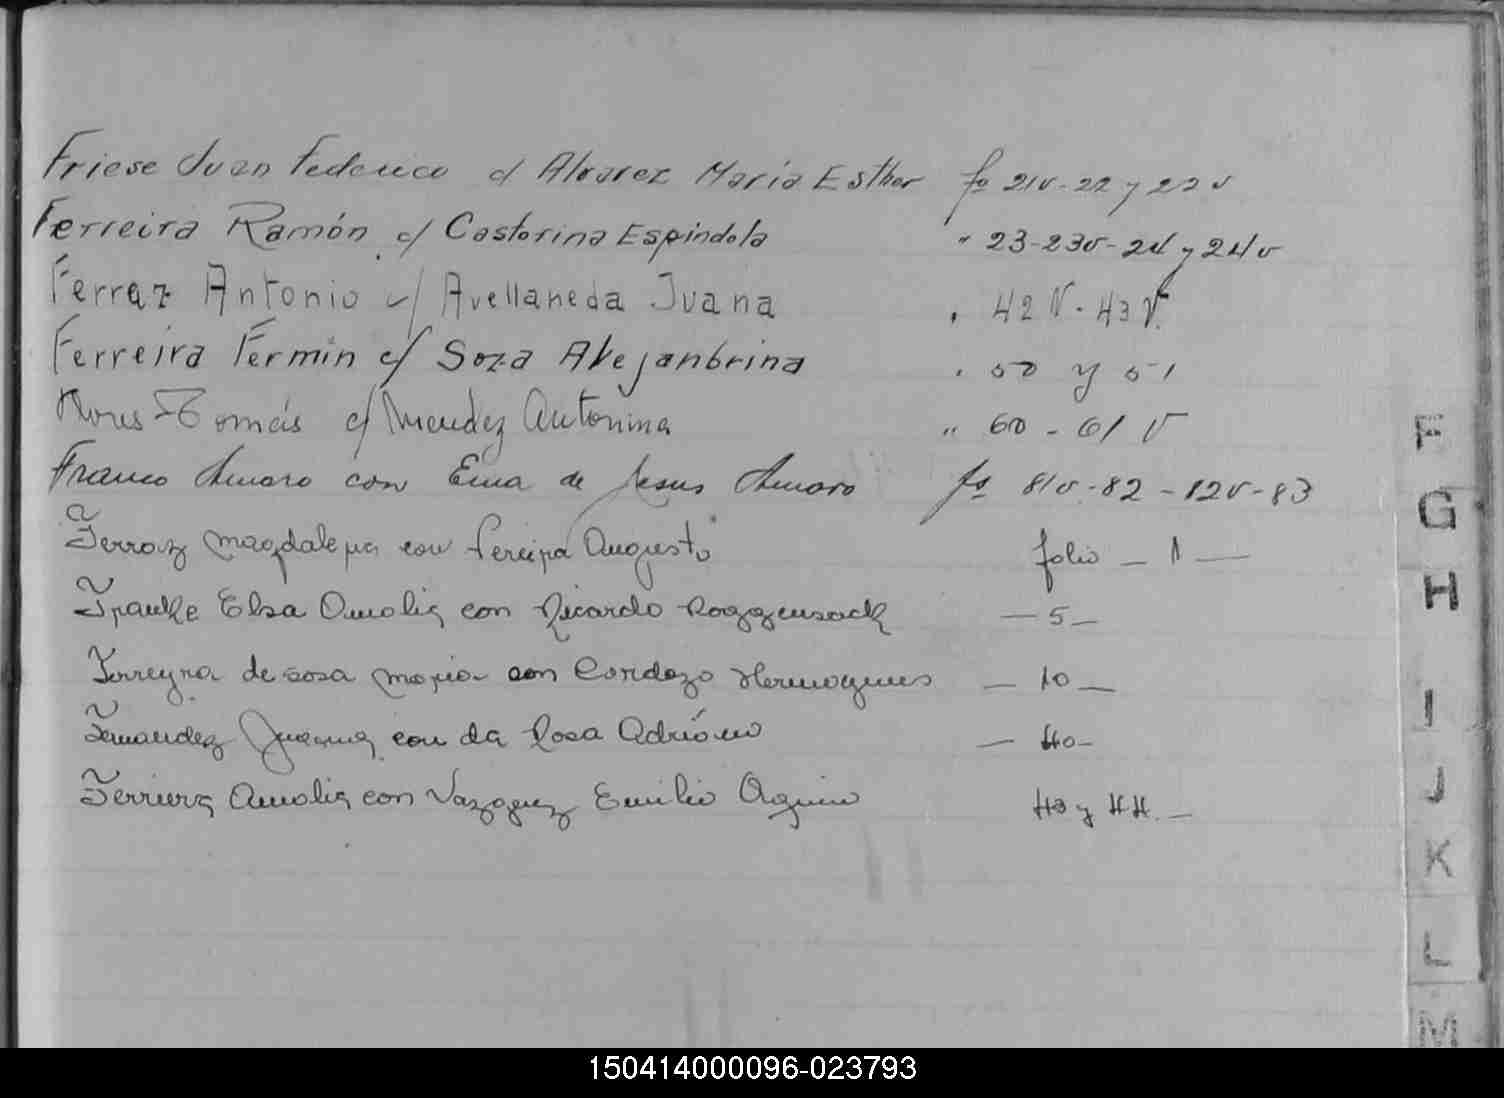 Friese Juan Federico c/ Alvarez Maria Esther fo 21v-22 y 22v
Ferreira Ramón c/ Castorina Espindola " 23-23v-24 y 24v
Ferraz Antonio c/ Avellaneda Juana " 42v-43v.
Ferreira Fermin c/ Soza Alejandrina " 50 y 51
Tomás c/ Mendez Antonina " 60-61v
Franco Amaro con Ema de Jesus Amaro fo 81v-82-82v-83
Ferraz Magdalena con Pereira Augusto folio - 1 -
Franke Elsa Amalia con Ricardo Roggensack - 5 -
Ferreyra de sosa maria con Cardozo Hermogenes - 10 -
Fernandez Juana con da Rosa Adriano - 40 -
Ferriera Amalia con Vazquez Emilio 43 y 44. -
F
G
H
I
J
K
L
M
150414000096-023793